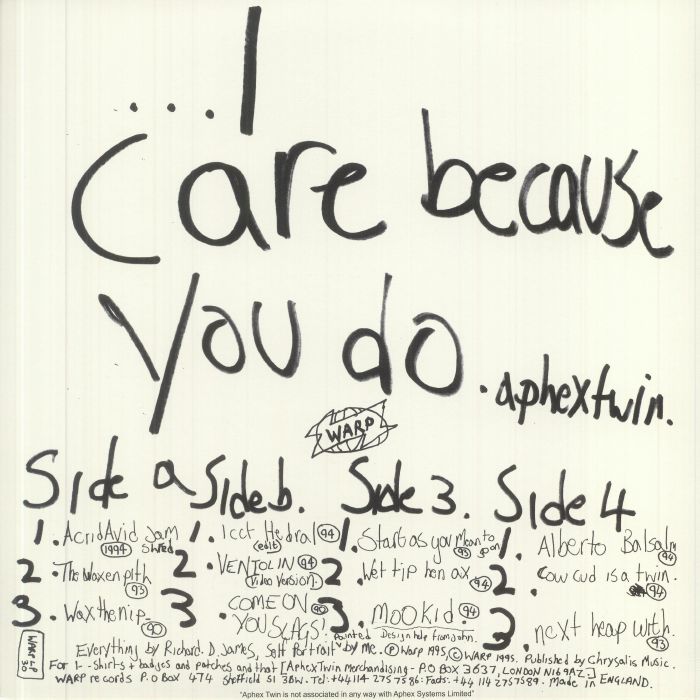 ...I
Care because
you do.
aphextwin.
WARP
Side a
1. Acrid Avid Jam
1994 Shred.
2. The Waxen pith
93
3. Wax the nip.
90
Side b.
1. Icct Hedral 94
(edit)
2. VENTOLIN 94
(Video Version).
3. COME ON 90
YOU SLAGS!
Side 3.
1. Start as you Mean to
93 go on
2. Wet tip hen ax. 94
3. Mookid. 94
Side 4
1. Alberto Balsalm
94
2. Cow cud is a twin.
94
3. next heap with.
93
WARP LP
30
Everything by Richard. D. James, Self Portrait painted by Me. Design help from john. Ⓟ Warp 1995 © WARP 1995. Published by Chrysalis Music.
For T-Shirts + badges and patches and that [AphexTwin Merchandising - P.O BOX 3637, LONDON N16 9AZ.]
WARP records P.O Box 474 Sheffield S1 3BW. Tel: +44 114 2757586: Facts. +44 114 2757589. Made in ENGLAND.
"Aphex Twin is not associated in any way with Aphex Systems Limited"